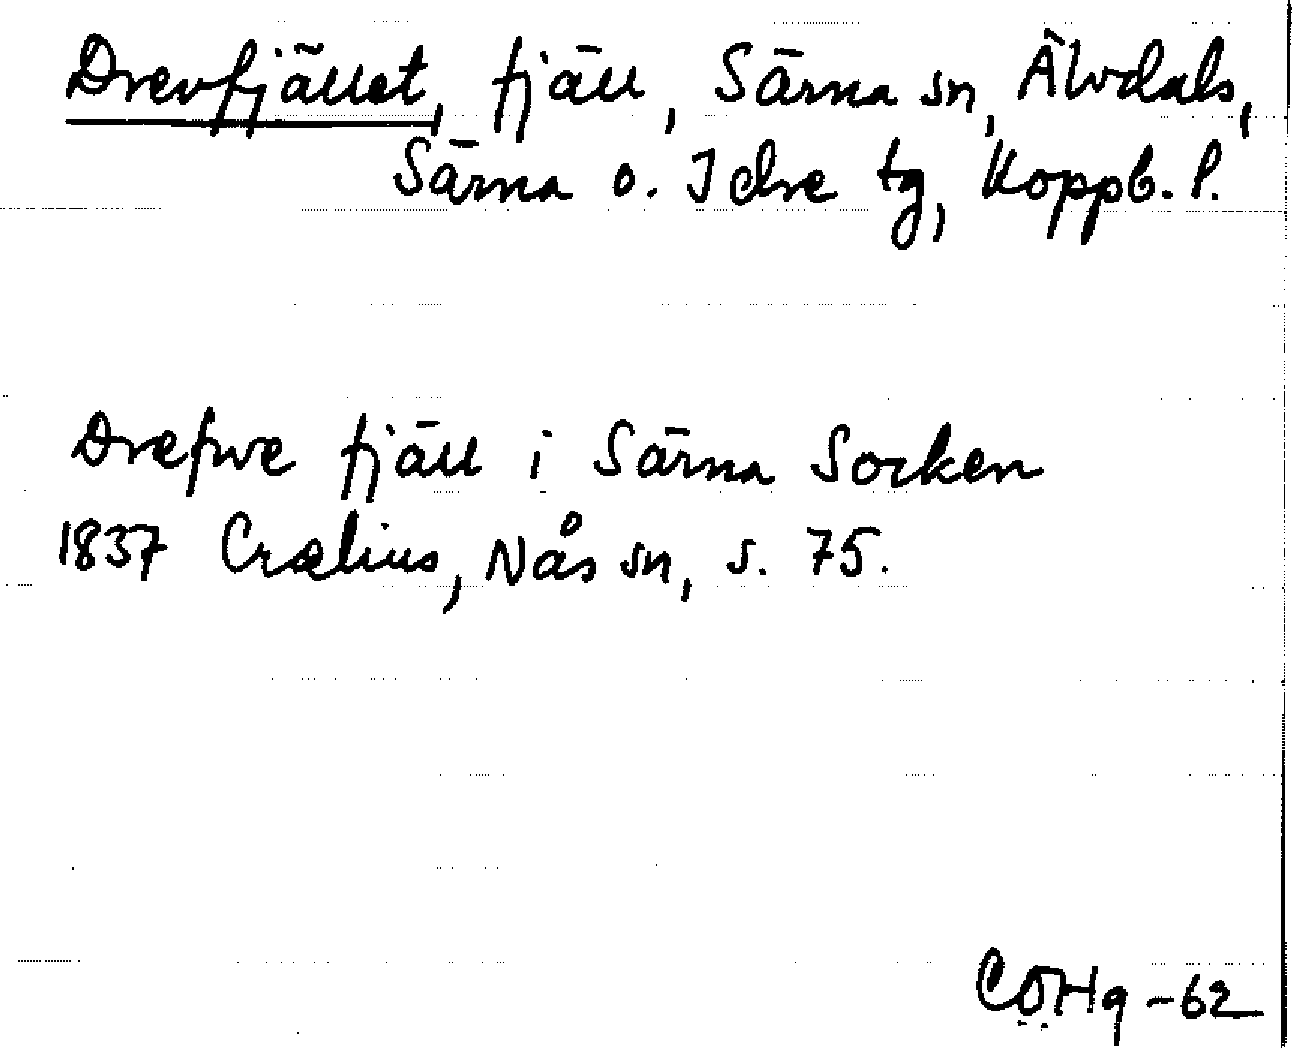 Drevfjället, fjäll, Särna sn, Älvdals,
Särna o. Idre tg, Koppb. l.
Drefwe fjäll i Särna Socken
1837 Crælius, Nås sn, s. 75.
CÖHg -62